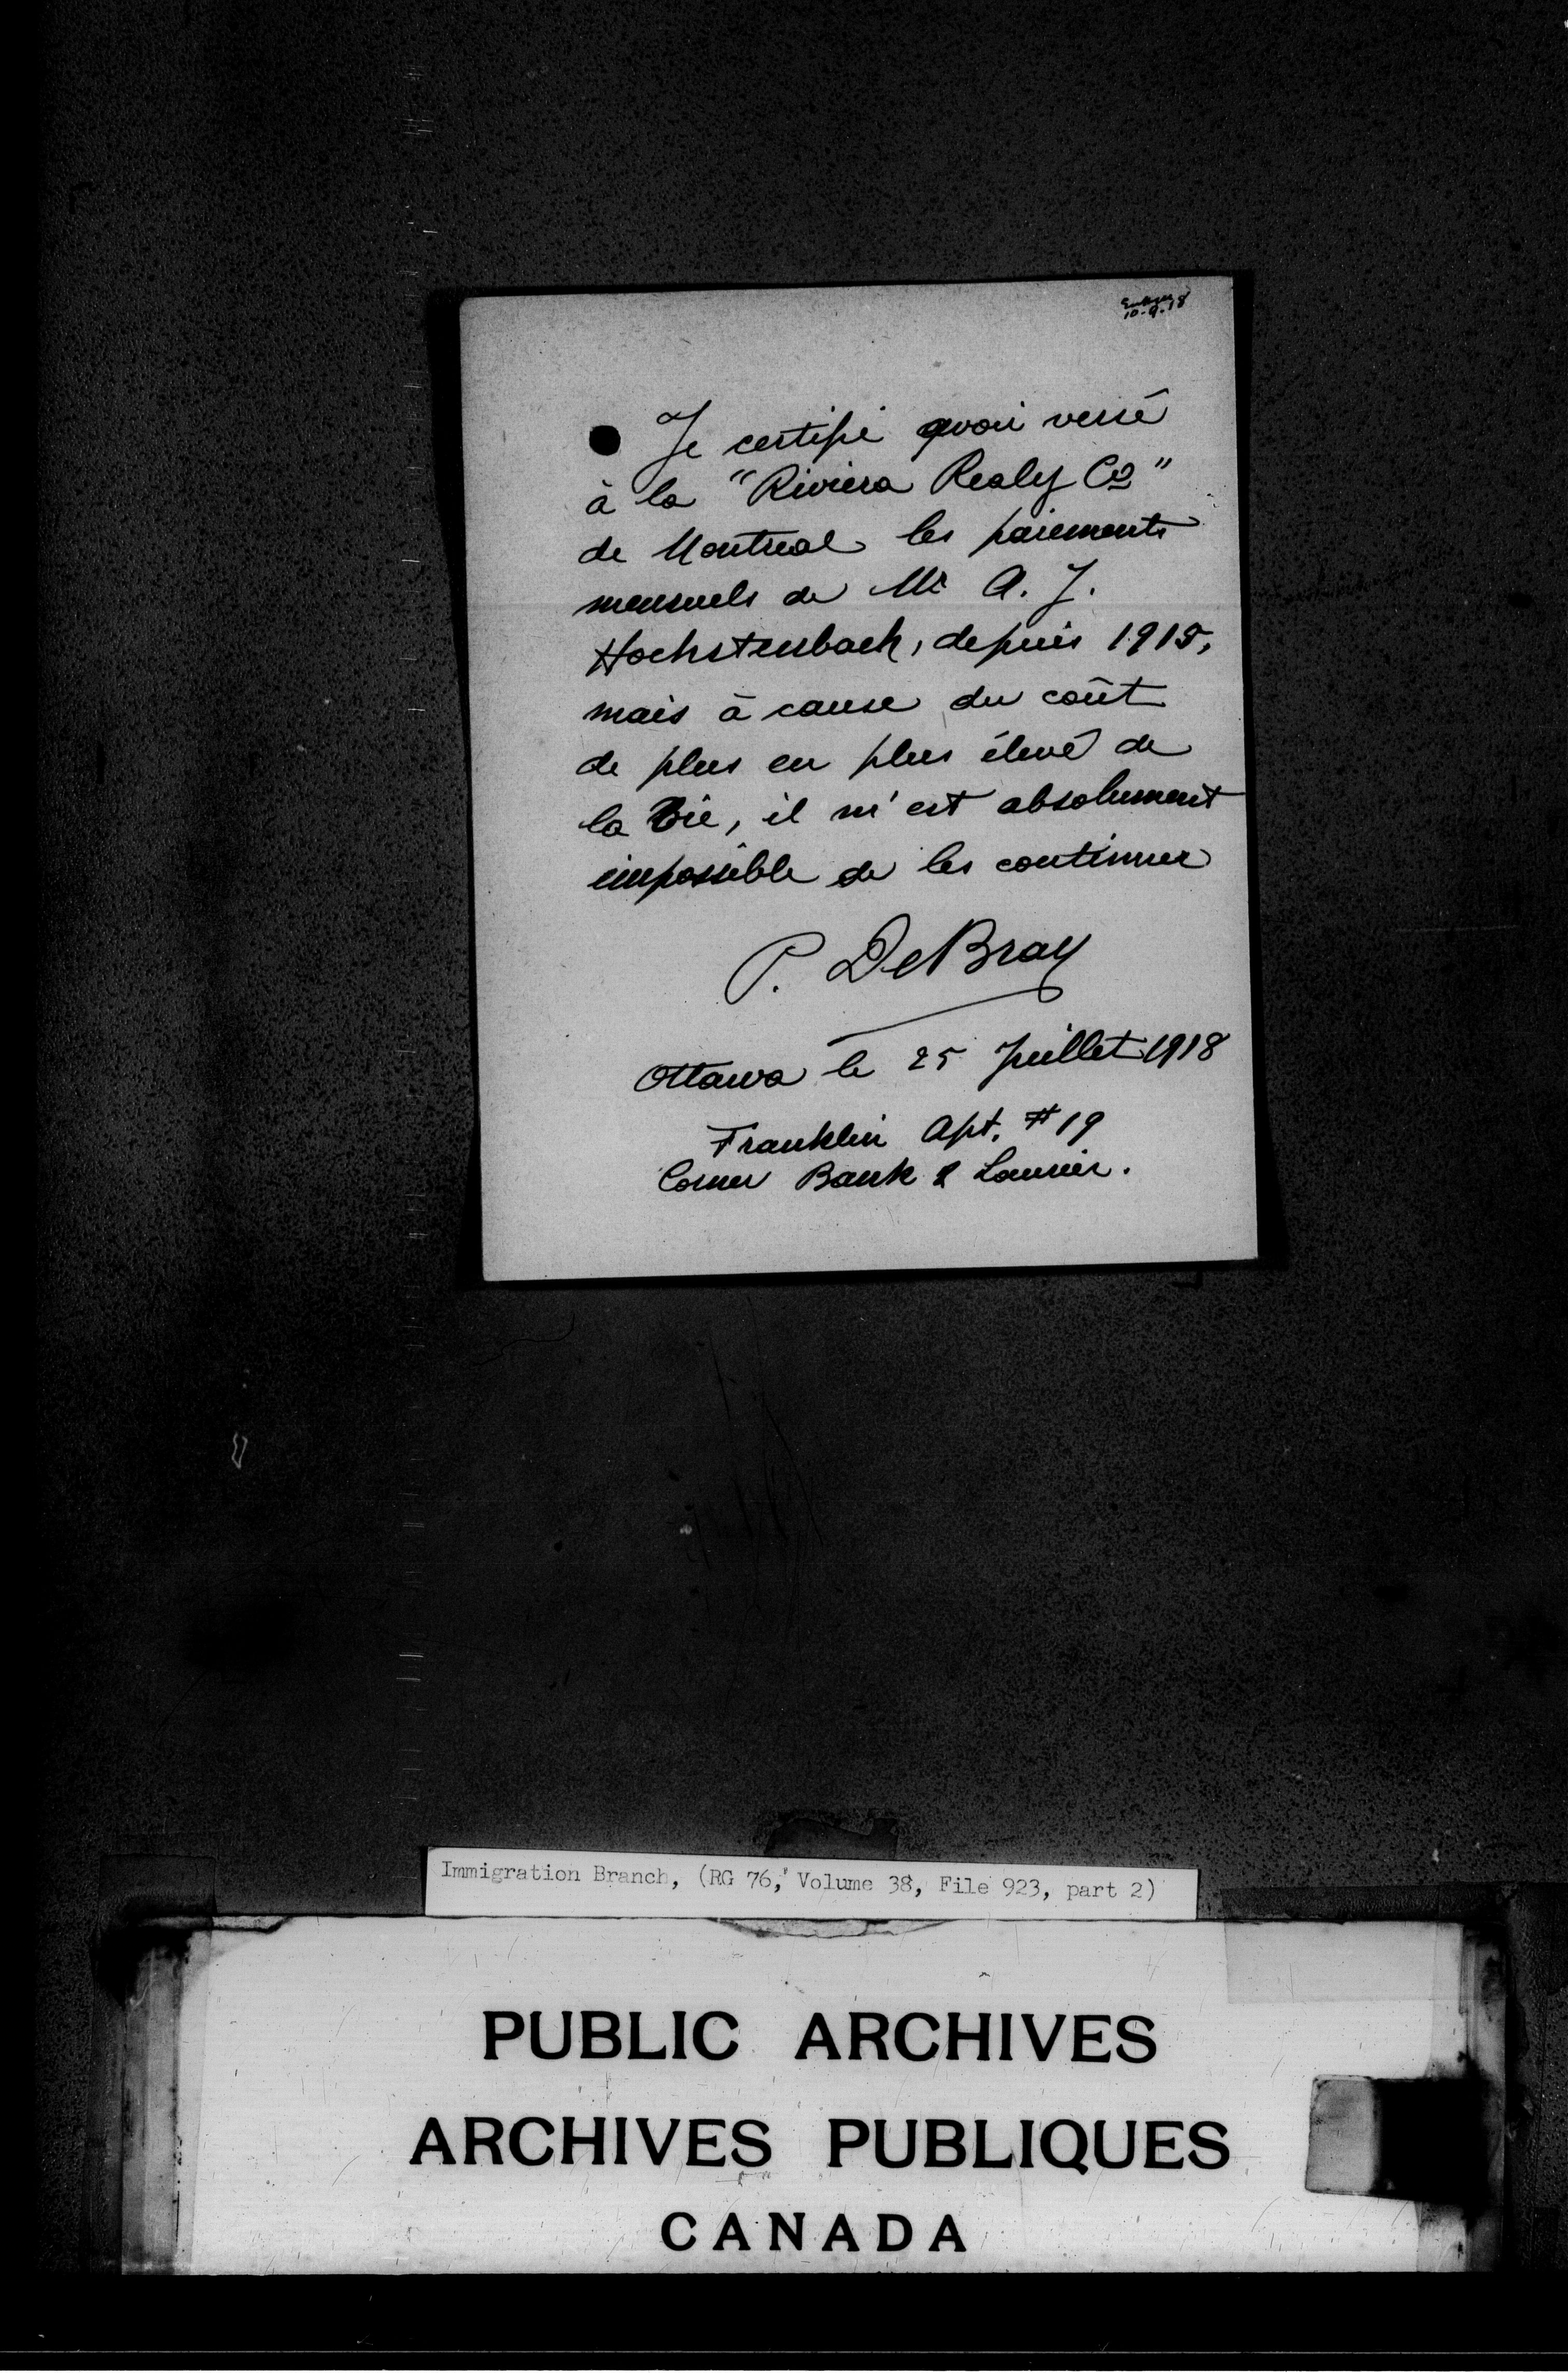 10-9-18
Je certifie avoir versé
à la "Riviera Realy Co"
de Montreal les paiements
mensuels de Mr A. J.
Hochstenbach, depuis 1915,
mais à cause du coût
de plus en plus élevé de
la Vie, il m'est absolument
impossible de les continuer
P. DeBray
Ottawa le 25 Juillet 1918
Franklin Apt. #19
Corner Bank & Laurier.
Immigration Branch, (RG 76, Volume 38, File 923, part 2)
PUBLIC ARCHIVES
ARCHIVES PUBLIQUES
CANADA